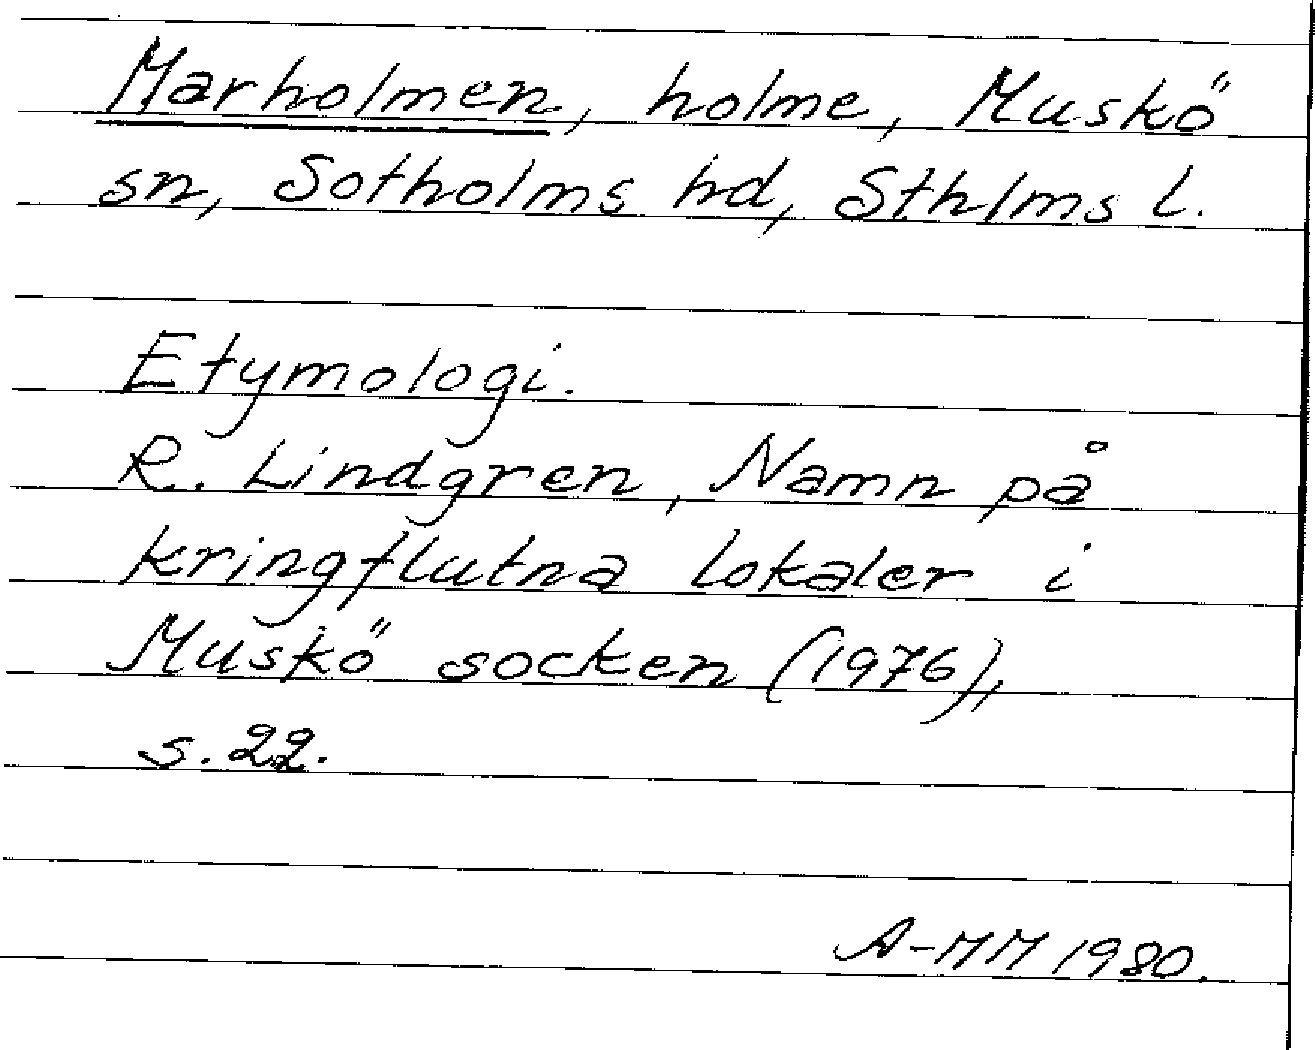 Marholmen, holme, Muskö
sn, Sotholms hd, Sthlms l.
Etymologi.
R. Lindgren, Namn på
kringflutna lokaler i
Muskö socken (1976),
s. 22.
A-MM 1980.